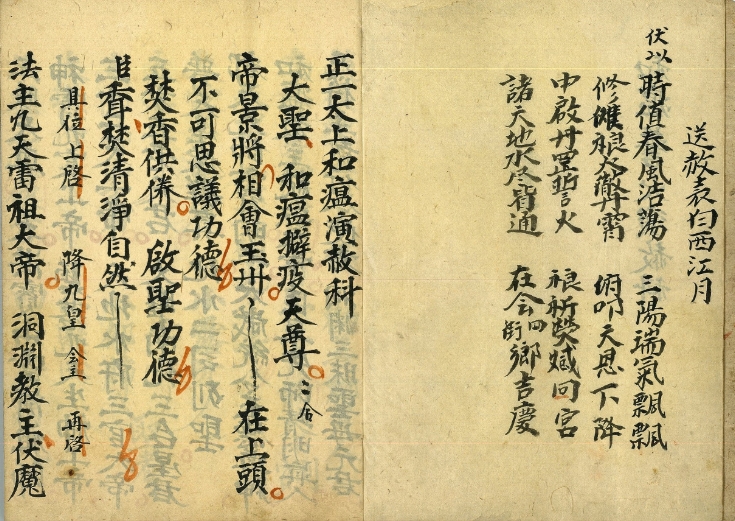 送赦表白西江月
伏以時值春風浩蕩 三陽瑞氣飄飄
修儺振入徹丹霄 俯叩天恩下降
申啟丹罡誓火 祈焚斌回宮
諸天地水尽皆通 在会四街鄉吉慶
正一太上和瘟演赦科
大聖 和瘟擗疫天尊 二合
帝景將相會玉州 在上頭
不可思議功德
焚香供养 啟聖功德
臣香焚清淨自然
具位上啓 降九皇 全 再啓
法主九天雷祖大帝 洞淵教主伏魔